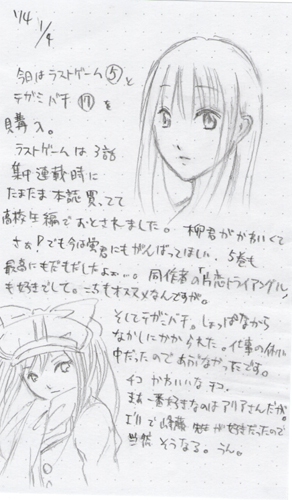 1/4
1/4
今日はラストゲーム⑤と
テガミバチ⑰を
購入。
ラストゲームは3話
集中連載時に
たまたま本誌買ってて
高校生編でおとされました。柳君がかわいくて
さぁ。でも今は蛍君にもがんばってほしい、5巻も
最高にもだもだしたよぉー。同作者の「片恋トライアングル」
も好きでして。こっちもオススメなんですが。
そしてテガミバチ。しょっぱなから
なかしにかかられた。仕事の休み
中だったのであぶなかったです。
チコかわいいなチコ。
まあ一番好きなのはアリアさんだが。
で 先生が好きだったので
当然そうなる。うん。